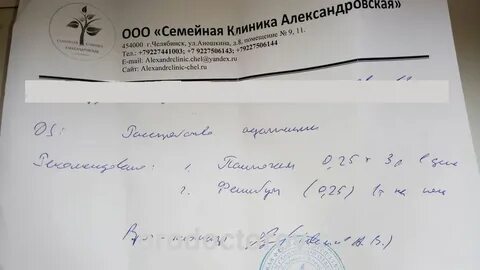 ООО «Семейная Клиника Александровская»
454000 г.Челябинск, ул.Аношкина, д.8, помещение № 9, 11.
Тел.:+79227441003; +7 9227506143; +79227506144
E-mail: Alexandrclinic.chel@yandex.ru
Сайт: Alexandrclinic-chel.ru
DS: Расстройство адаптации
Рекомендовано: 1. Пантогам 0,25 х 3 р в день
2. Фенибут (0,25) 1т на ночь
prodoctorov